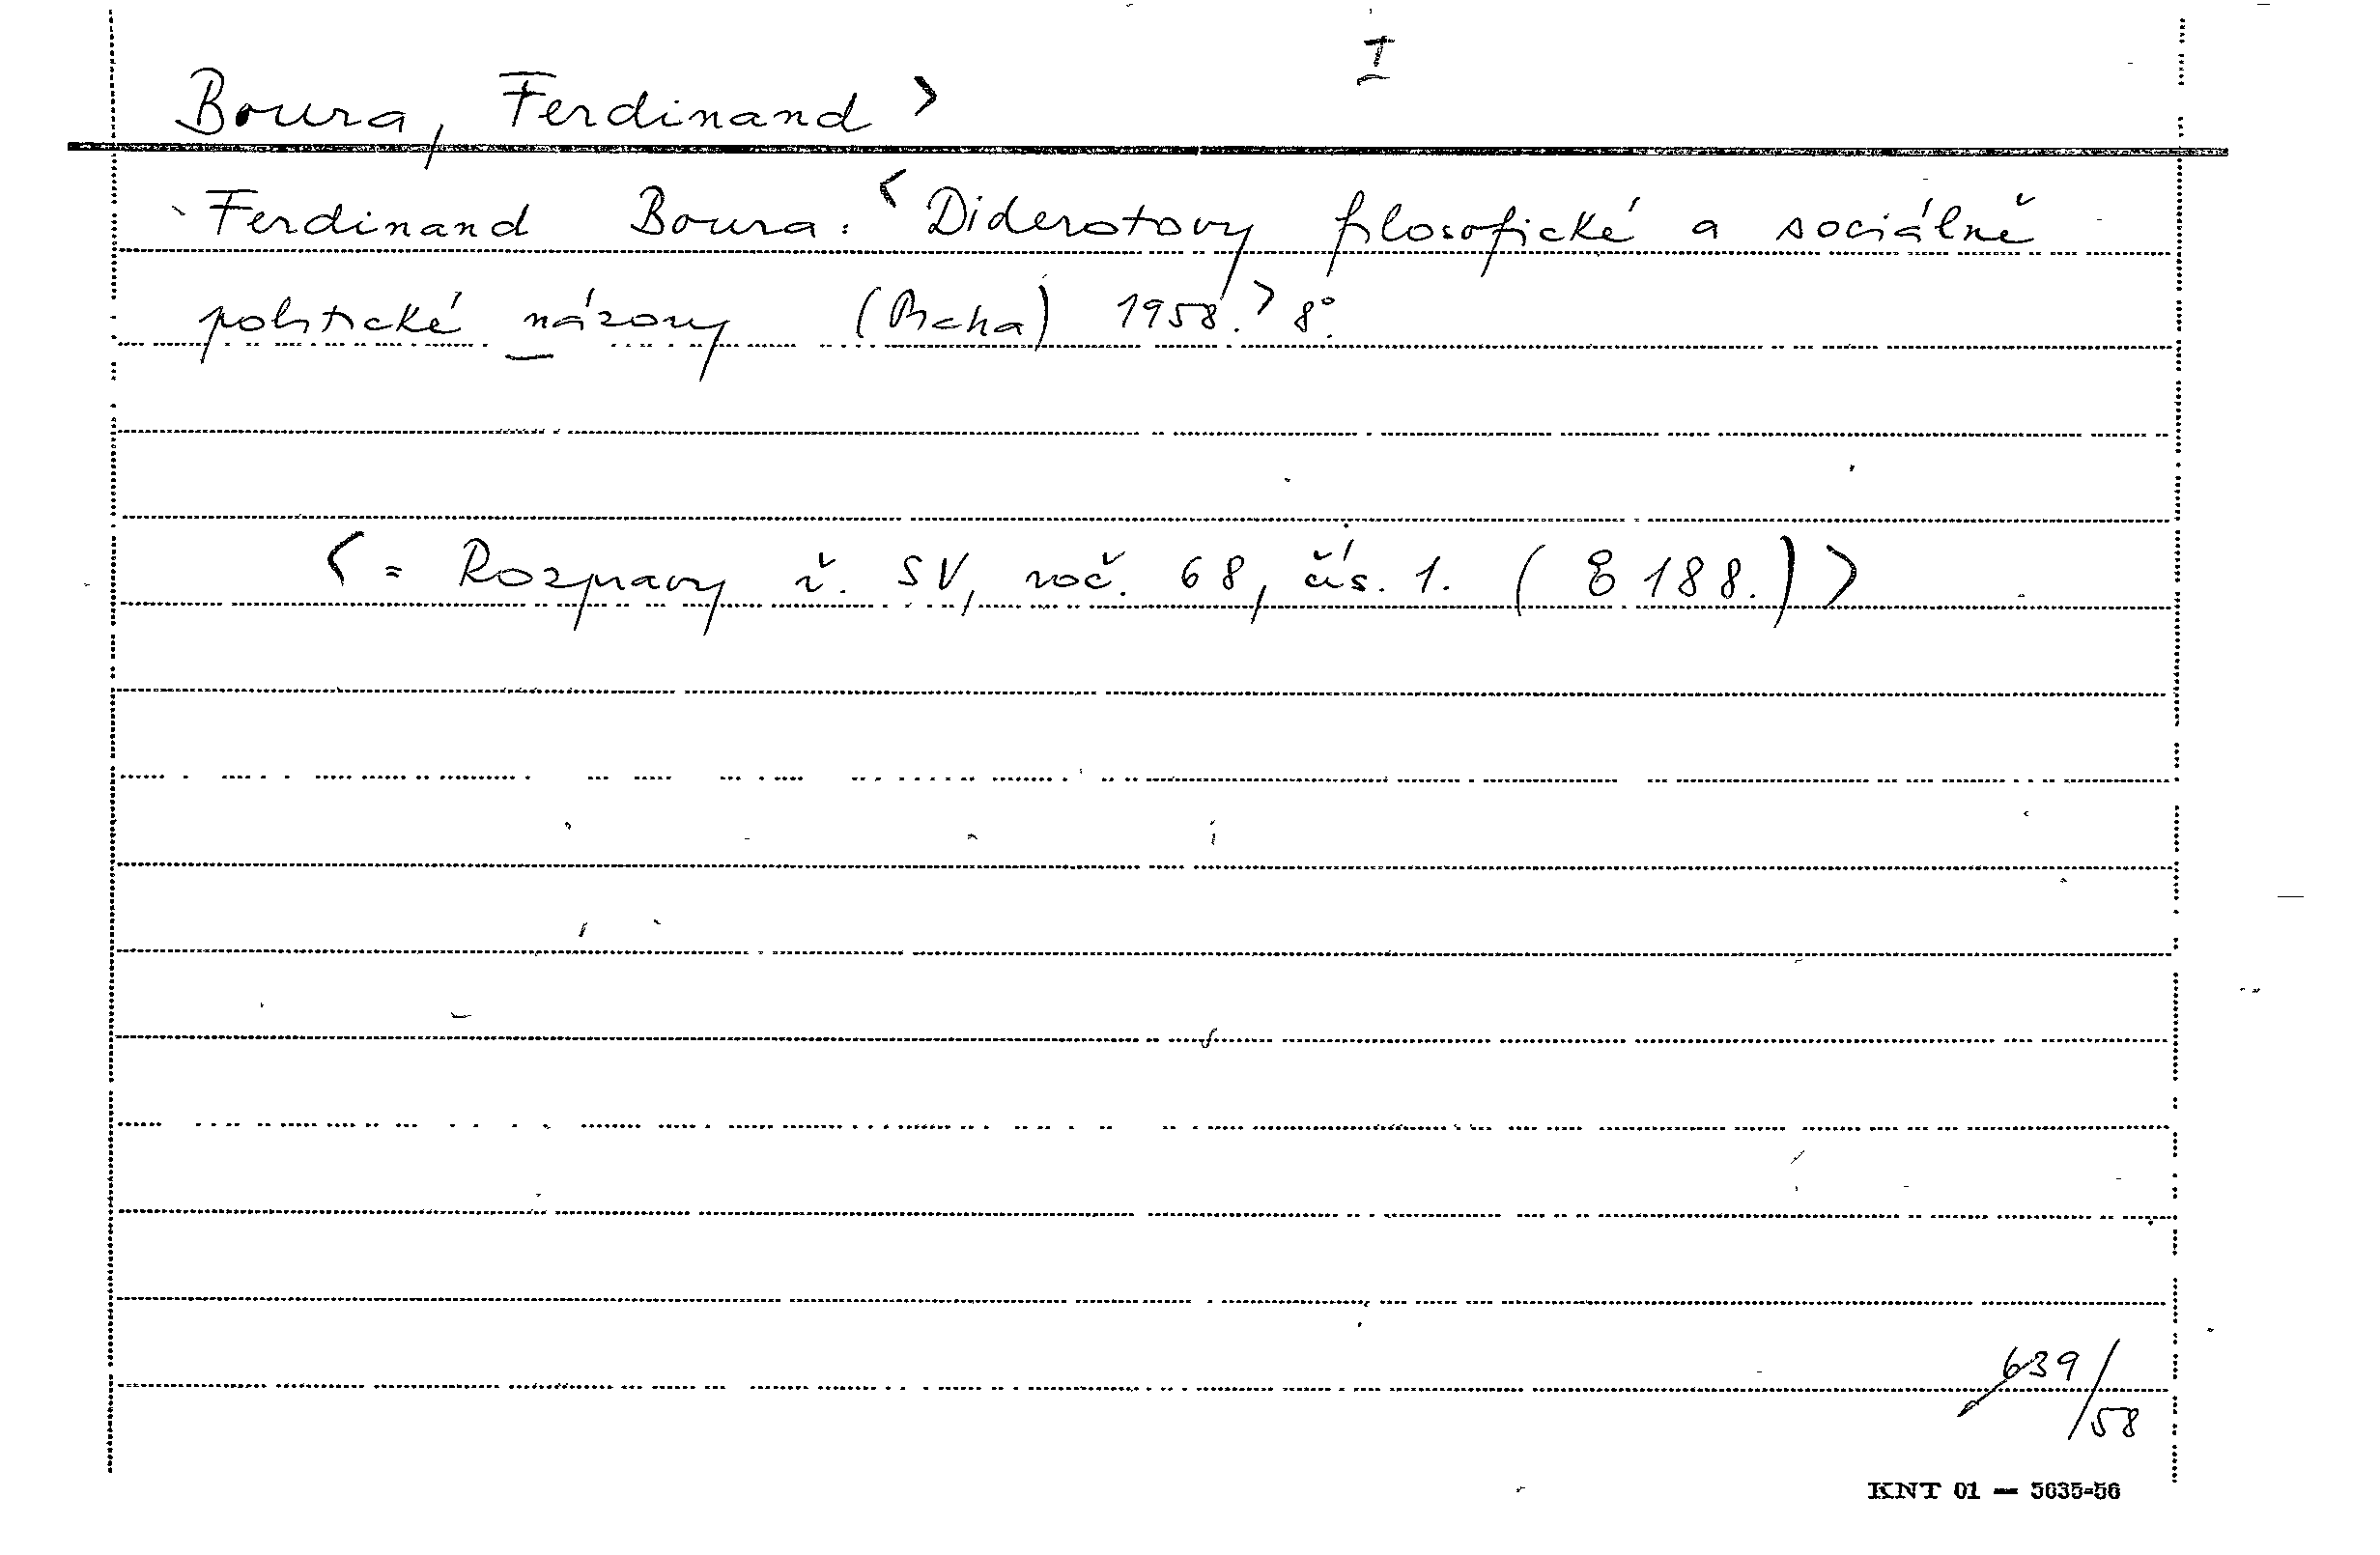 I
Boura, Ferdinand >
Ferdinand Boura: <Diderotovy filosofické a sociálně
politické názory (Praha) 1958.> 8°.
< = Rozpravy ř. SV, roč. 68, čís. 1. ( E 188.) >
639/58
KNT 01 — 5635-56